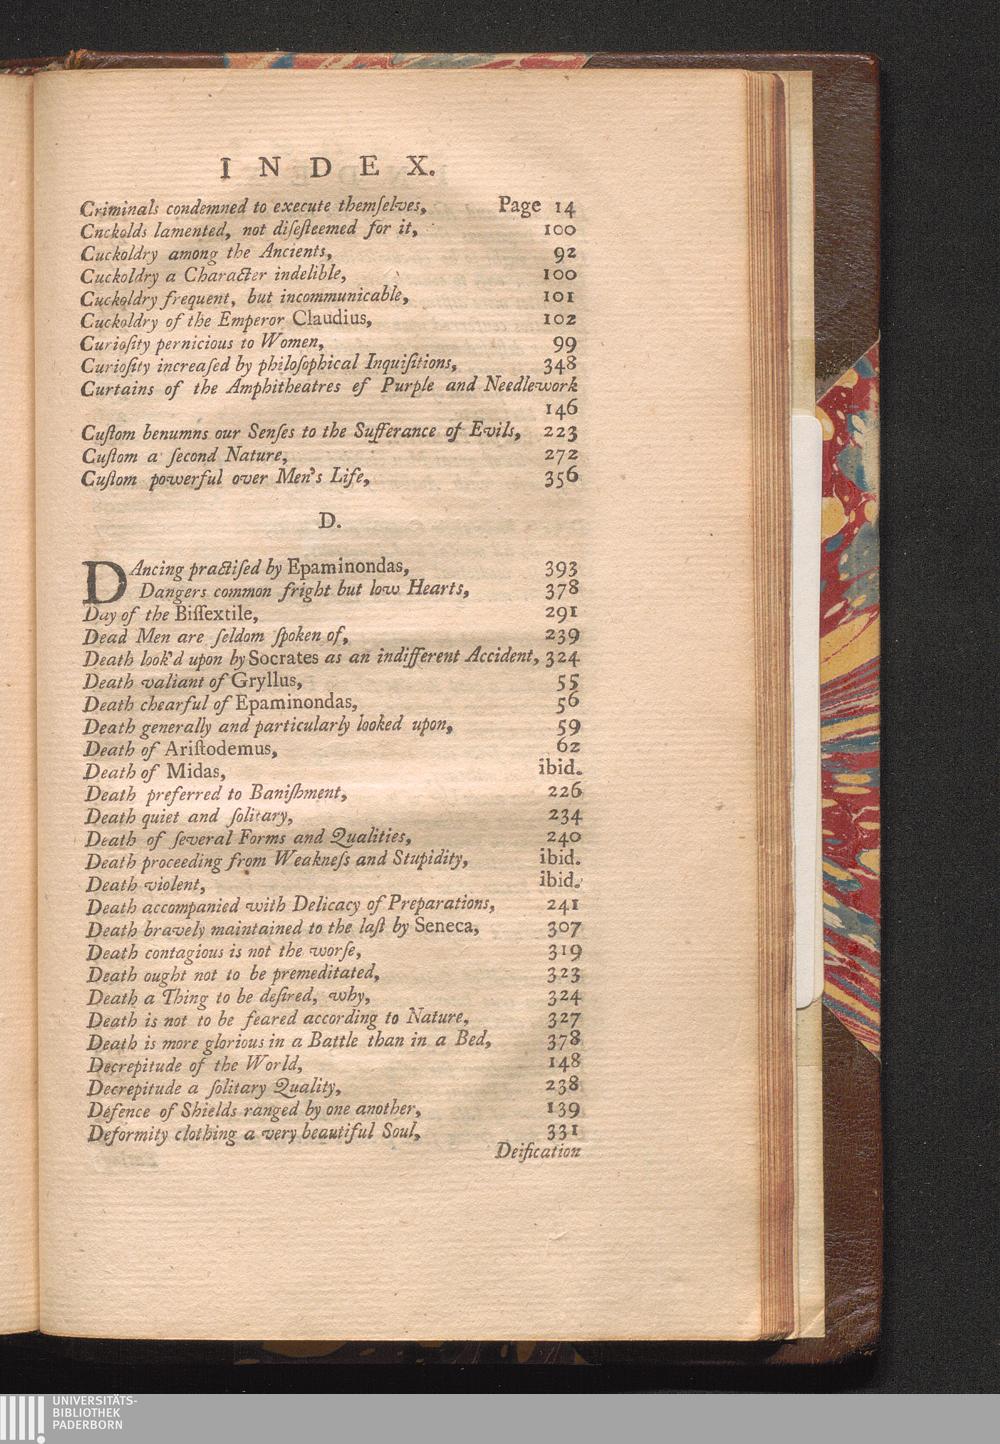 INDEX.
Criminals condemned to execute themſelves, Page 14
Cnckolds lamented, not diſeſteemed for it, 100
Cuckoldry among the Ancients, 92
Cuckoldry a Character indelible, 100
Cuckoldry frequent, but incommunicable, 101
Cuckoldry of the Emperor Claudius, 102
Curioſity pernicious to Women, 99
Curioſity increaſed by philoſophical Inquiſitions, 348
Curtains of the Amphitheatres ef Purple and Needlework
146
Cuſtom benumns our Senſes to the Sufferance of Evils, 223
Cuſtom a ſecond Nature, 272
Cuſtom powerful over Men's Life, 356
D.
DAncing practiſed by Epaminondas, 393
Dangers common fright but low Hearts, 378
Day of the Biſſextile, 291
Dead Men are ſeldom ſpoken of, 239
Death look'd upon by Socrates as an indifferent Accident, 324
Death valiant of Gryllus, 55
Death chearful of Epaminondas, 56
Death generally and particularly looked upon, 59
Death of Ariſtodemus, 62
Death of Midas, ibid.
Death preferred to Baniſhment, 226
Death quiet and ſolitary, 234
Death of ſeveral Forms and Qualities, 240
Death proceeding from Weakneſs and Stupidity, ibid.
Death violent, ibid.
Death accompanied with Delicacy of Preparations, 241
Death bravely maintained to the laſt by Seneca, 307
Death contagious is not the worſe, 319
Death ought not to be premeditated, 323
Death a Thing to be deſired, why, 324
Death is not to be feared according to Nature, 327
Death is more glorious in a Battle than in a Bed, 378
Decrepitude of the World, 148
Decrepitude a ſolitary Quality, 238
Defence of Shields ranged by one another, 139
Deformity clothing a very beautiful Soul, 331
Deification
UNIVERSITÄTS-
BIBLIOTHEK
PADERBORN